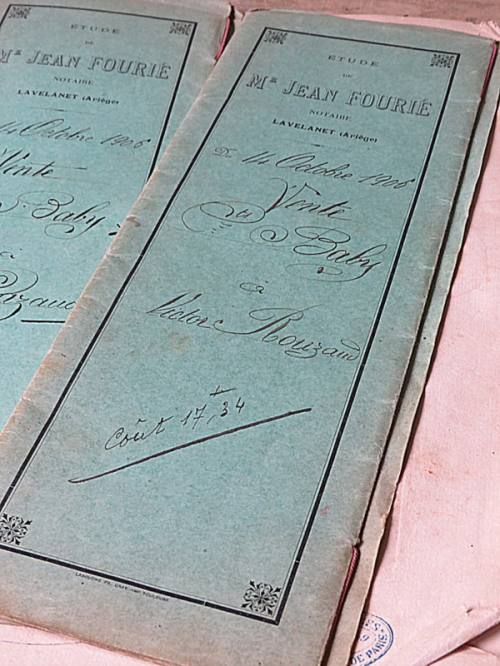 ETUDE
DE
Me JEAN FOURIÉ
NOTAIRE
LAVELANET (Ariège)
14 Octobre 1906
Vente
Baby
à
ETUDE
DE
Me JEAN FOURIÉ
NOTAIRE
LAVELANET (Ariège)
Du 14 Octobre 1906
Vente
Baby
à
Victor Rouzaud
Coût 17f,34
DE PARIS